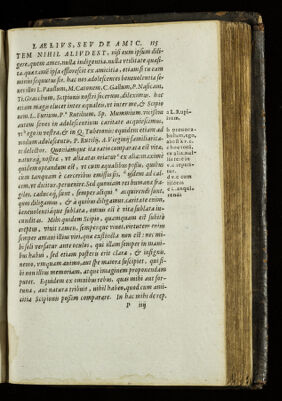 LAELIVS, SEV DE AMIC. 115
TEM NIHIL ALIVD EST, nisi eum ipsum dili-
gere, quem ames, nulla indigentia, nulla utilitate quæsi-
ta. quæ tamen ipsa efflorescit ex amicitia, etiam si tu eam
minus secutus sis. hac nos adolescentes beneuolentia se-
nes illos L. Paullum, M. Catonem, C. Gallum, P. Nasicam,
Ti. Gracchum, Scipionis nostri socerum, dileximus. hæc
etiam magis elucet inter equales, ut inter me, & Scipio-
nem, L. Furium, P. Rutilium, Sp. Mummium. uicissim
autem senes in adolescentium caritate acquiescimus,
ut in uestra, & in Q. Tuberonis: equidem etiam ad-
modum adolescentis, P. Rutilij, A. Virginij familiarita-
te delector. Quoniamque ita ratio comparata est uitæ,
naturæq́; nostræ, ut alia ætas oriatur ex alia: maxime
quidem optandum est, ut cum æqualibus possis, quibus
cum tanquam e carceribus emissus sis, ijsdem ad cal-
cem, ut dicitur, peruenire. Sed quoniam res humanæ fra-
giles, caducæq́; sunt, semper aliqui acquirendi sunt,
quos diligamus, & a quibus diligamur. caritate enim,
beneuolentiaque sublata, omnis est e uita sublata iu-
cunditas. Mihi quidem Scipio, quamquam est subito
ereptus, uiuit tamen, semperque uiuet. uirtutem enim
semper amaui illius uiri, quæ exstincta non est: nec mi-
hi soli uersatur ante oculos, qui illam semper in mani-
bus habui, sed etiam posteris erit clara, & insignis.
nemo umquam animo, aut spe maiora suscipiet, qui si-
bi non illius memoriam, atque imaginem proponendam
putet. Equidem ex omnibus rebus, quas mihi aut for-
tuna, aut natura tribuit, nihil habeo, quod cum ami-
citia Scipionis possim comparare. In hac mihi de rep.
P iij